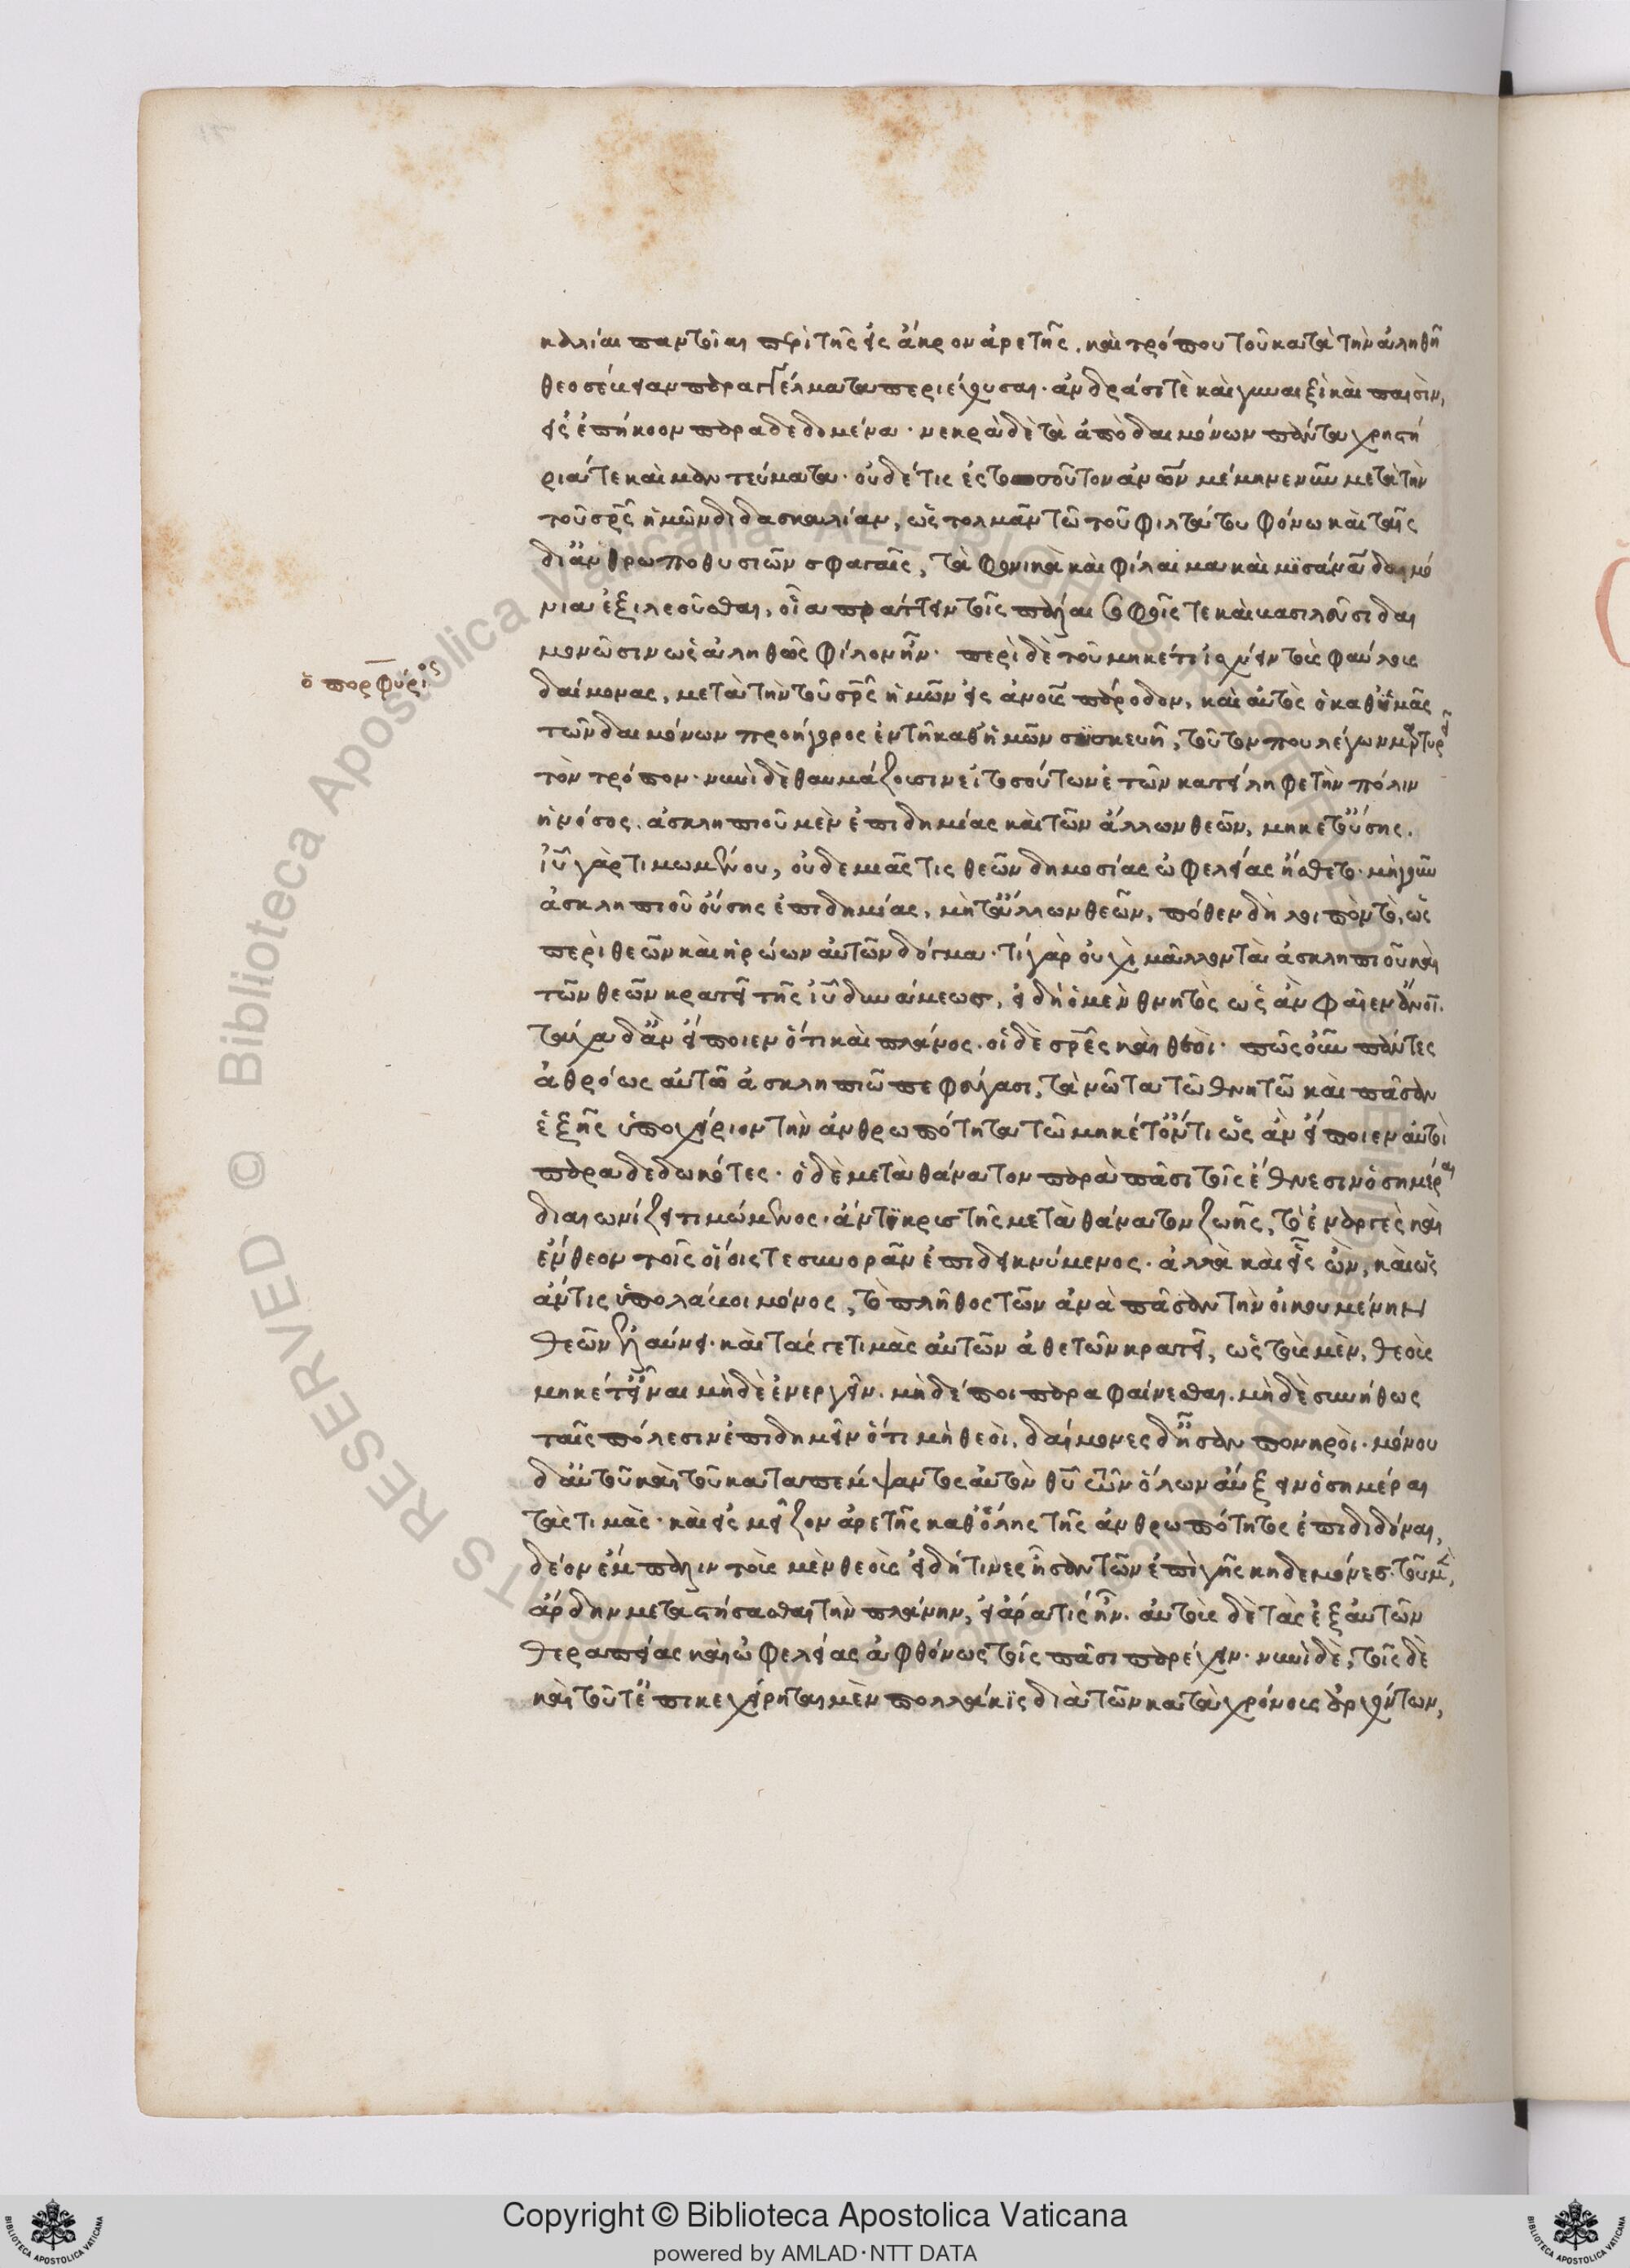 καλίαι παντοῖαι περὶ τῆς εἰς ἄκρον ἀρετῆς. καὶ τρόπου τοῦ κατὰ τὴν ἀληθῆ
θεοσέβειαν παραγγέλματα περιέχουσαι. ἀνδράσι τὲ καὶ γυναιξὶ καὶ παισὶν,
εἰς ἐπήκοον παραδεδομένα. νεκρὰ δὲ τὰ ἀπὸ δαιμόνων πάντα χρηστή
ριά τε καὶ μαντεύματα. οὐδέ τις ἐς τοσοῦτον ἀνων μέμηνε νῦν μετὰ τὴν
τοῦ σρ̅ς ἡμῶν διδασκαλίαν, ὡς τολμᾶν τῶ τοῦ φιλτάτου φόνω καὶ ταῖς
δι' ἀνθρωποθυσιῶν σφαγαῖς, τὰ φονικὰ καὶ φίλαιμα καὶ μισάνα δαιμό
νια ἐξιλεοῦσθαι, οἷα πράττειν τοῖς πάλαι σοφοῖς τε καὶ βασιλεῦσι δαι
μονῶσιν ὡς ἀληθῶς φίλον ἦν. περὶ δὲ τοῦ μηκέτι ἰσχύειν τοὺς φαύλους
ὁ πορφύριος
δαίμονας, μετὰ τὴν τοῦ σρ̅ς ἡμῶν εἰς ἀνους πάροδον, καὶ αὐτὸς ὁ καθ' ἡμᾶς
τῶν δαιμόνων προήγορος ἐν τῆ καθ' ἡμῶν συσκευῆ, τοῦτόν που λέγων μαρτυρεῖ
τὸν τρόπον. νυνὶ δὲ θαυμάζουσιν εἰ τοσούτων ἐτῶν κατείληφε τὴν πόλιν
ἡ νόσος. ἀσκληπιοῦ μὲν ἐπιδημίας καὶ τῶν ἄλλων θεῶν, μηκέτ' οὔσης.
ἰῦ γὰρ τιμωμένου, οὐδεμιᾶς τις θεῶν δημοσίας ὠφελείας ἤσθετο. μὴ γοῦν
ἀσκληπιοῦ οὔσης ἐπιδημίας, μήτ' ἄλλων θεῶν, πόθεν δὴ λοιπὸν τὸ, ὡς
περὶ θεῶν καὶ ἡρώων αὐτῶν δόγμα. τί γὰρ οὐχὶ μᾶλλον τὰ ἀσκληπιοῦ καὶ
τῶν θεῶν κρατεῖ τῆς ἰῦ δυνάμεως, εἰ δὴ ὁ μὲν θνητὸς ὡς ἂν φαῖεν ἄνοι.
τάχα δ' ἂν εἴποιεν ὅτι καὶ πλάνος. οἱ δὲ σρ̅ες καὶ θεοὶ. πῶς οὖν πάντες
ἀθρόως αὐτῶ ἀσκληπιῶ πεφεύγασι, τὰ νῶτα τῶ θνητῶ καὶ πᾶσαν
ἑξῆς ὑποχείριον τὴν ἀνθρωπότητα τῶ μηκέτ' ὄντι ὡς ἂν εἴποιεν αὐτοὶ
παραδεδωκότες. ὁ δὲ μετὰ θάνατον παρὰ πᾶσι τοῖς ἔθνεσιν ὁσημέραι
διαιωνίζει τιμώμενος. ἄντικρυς τῆς μετὰ θάνατον ζωῆς, τὸ ἐναργὲς καὶ
ἔνθεον τοῖς οἵοις τε συνορᾶν ἐπιδεικνύμενος. ἀλλὰ καὶ εἷς ὢν, καὶ ὡς
ἄν τις ὑπολάβοι μόνος, τὸ πλῆθος τῶν ἀνὰ πᾶσαν τὴν οἰκουμένην
θεῶν ἐλαύνει. καὶ τάς γε τιμὰς αὐτῶν ἀθετῶν κρατεῖ, ὡς τοὺς μὲν, θεοὺς
μηκέτ' εἶναι μηδὲ ἐνεργεῖν. μηδέ ποι παραφαίνεσθαι. μηδὲ συνήθως
ταῖς πόλεσιν ἐπιδημεῖν ὅτι μὴ θεοὶ, δαίμονες δ' ἦσαν πονηροὶ. μόνου
δ' αὐτοῦ καὶ τοῦ καταπέμψαντος αὐτὸν θῦ τῶν ὅλων αὔξειν ὁσημέραι
τὰς τιμὰς. καὶ εἰς μεῖζον ἀρετῆς καθ' ὅλης τῆς ἀνθρωπότητος ἐπιδιδόναι,
δέον ἔμπαλιν τοὺς μὲν θεοὺς εἰ δή τινες ἦσαν τῶν ἐπὶ γῆς κηδεμόνες. τοῦ μὲν,
ἄρδην μεταστήσασθαι τὴν πλάνην, εἰ ἄρα τις ἦν. αὐτοὺς δὲ τὰς ἐξ αὐτῶν
θεραπείας καὶ ὠφελείας ἀφθόνως τοῖς πᾶσι παρέχειν. νυνὶ δὲ, τοῖς δὲ
καὶ τοῦτ' ἐπικεχείρηται μὲν πολλάκις διὰ τῶν κατὰ χρόνους ἀρχόντων,
Copyright © Biblioteca Apostolica Vaticana
powered by AMLAD･NTT DATA